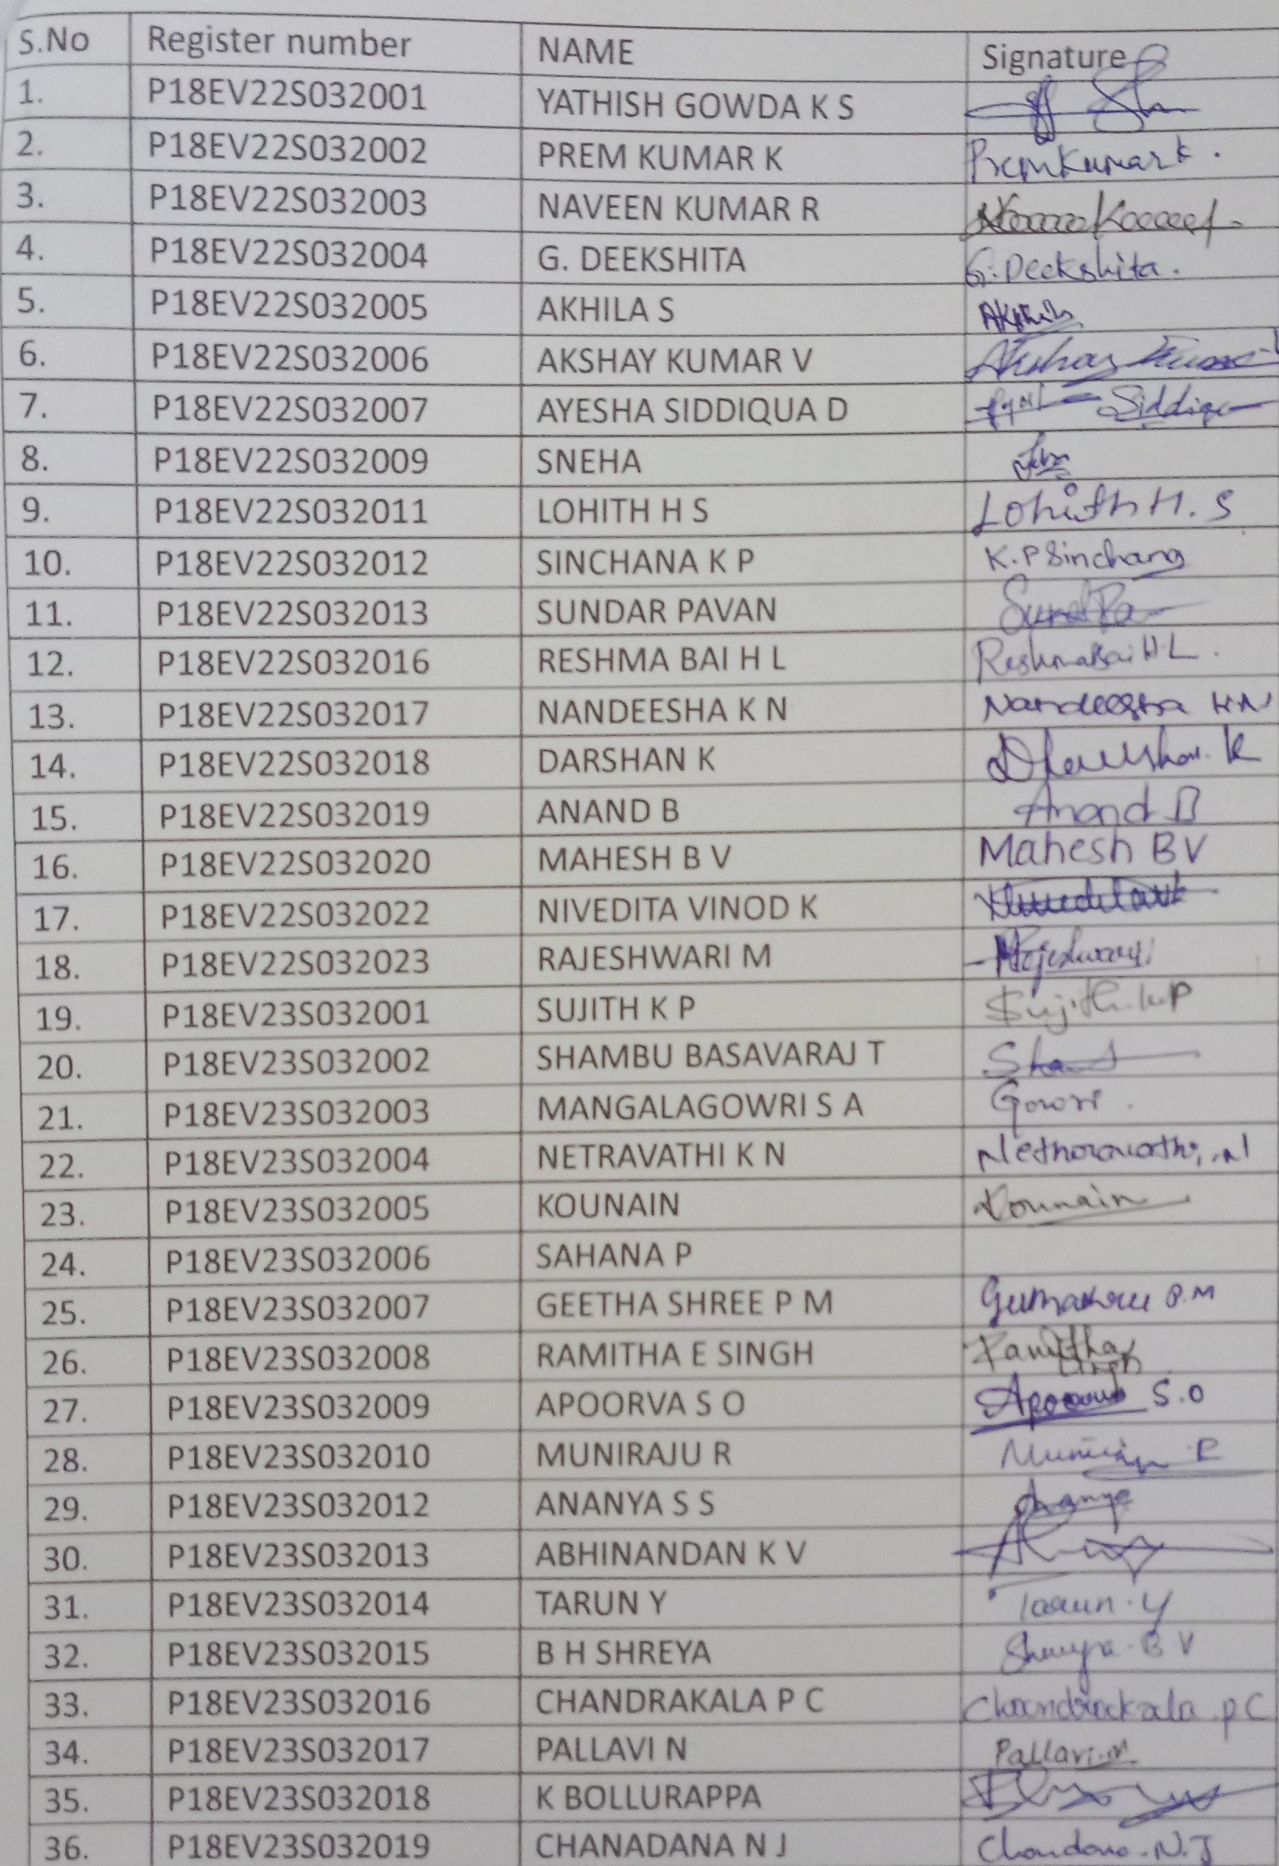 S.No Register number NAME Signature
1. P18EV22S032001 YATHISH GOWDA K S
2. P18EV22S032002 PREM KUMAR K Prem Kumar K.
3. P18EV22S032003 NAVEEN KUMAR R
4. P18EV22S032004 G. DEEKSHITA G. Deekshita.
5. P18EV22S032005 AKHILA S
6. P18EV22S032006 AKSHAY KUMAR V
7. P18EV22S032007 AYESHA SIDDIQUA D
8. P18EV22S032009 SNEHA
9. P18EV22S032011 LOHITH H S Lohith H. S
10. P18EV22S032012 SINCHANA K P K.P Sinchana
11. P18EV22S032013 SUNDAR PAVAN
12. P18EV22S032016 RESHMA BAI H L Reshma Bai H.L.
13. P18EV22S032017 NANDEESHA K N
14. P18EV22S032018 DARSHAN K
15. P18EV22S032019 ANAND B Anand B
16. P18EV22S032020 MAHESH B V Mahesh B V
17. P18EV22S032022 NIVEDITA VINOD K
18. P18EV22S032023 RAJESHWARI M Rajeshwari
19. P18EV23S032001 SUJITH K P Sujith.K.P
20. P18EV23S032002 SHAMBU BASAVARAJ T
21. P18EV23S032003 MANGALAGOWRI S A Gowri.
22. P18EV23S032004 NETRAVATHI K N
23. P18EV23S032005 KOUNAIN Kounain
24. P18EV23S032006 SAHANA P
25. P18EV23S032007 GEETHA SHREE P M P.M
26. P18EV23S032008 RAMITHA E SINGH
27. P18EV23S032009 APOORVA S O Apoorva S.O
28. P18EV23S032010 MUNIRAJU R
29. P18EV23S032012 ANANYA S S
30. P18EV23S032013 ABHINANDAN K V
31. P18EV23S032014 TARUN Y Tarun.Y
32. P18EV23S032015 B H SHREYA
33. P18EV23S032016 CHANDRAKALA P C Chandrakala.P C
34. P18EV23S032017 PALLAVI N Pallavi.N
35. P18EV23S032018 K BOLLURAPPA
36. P18EV23S032019 CHANADANA N J Chandana.N.J